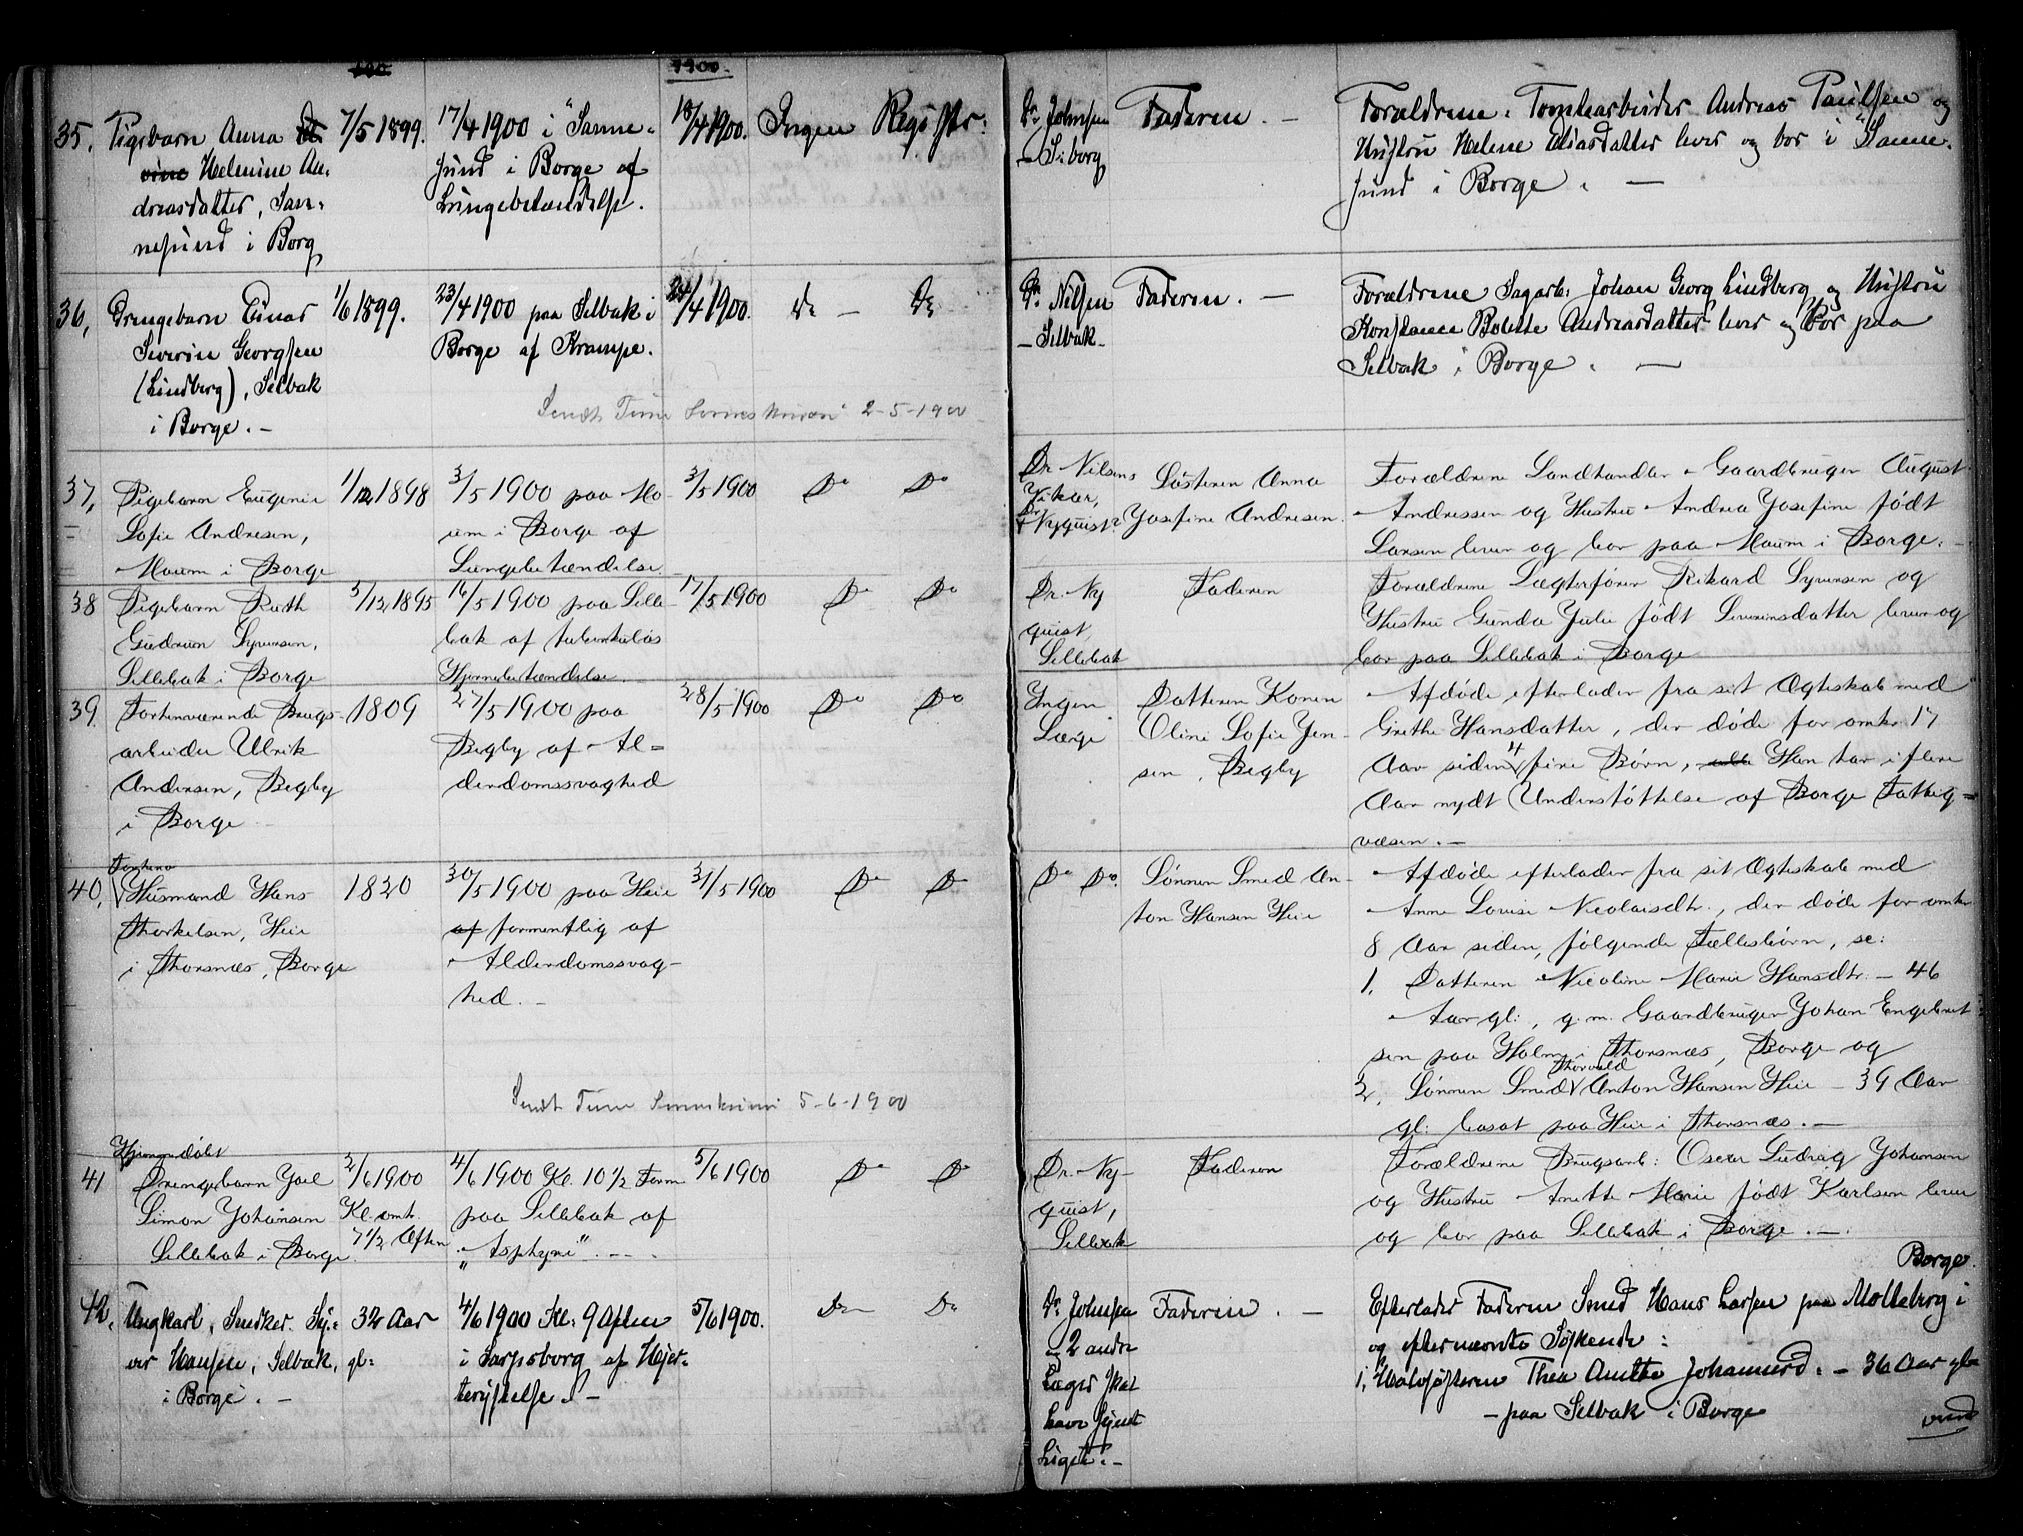 1900.
35. Pigebarn Anna
Helmine An-
dreasdatter, San-
nesund i Borg
7/5 1899.
17/4 1900 i "Sanne-
sund i Borge af
Lungebetændelse.
18/4 1900.
Ingen Registr:
Dr Johnsen
- S:borg
Faderen. -
Forældrene: Tomtearbeider Andreas Paulsen og
Hustru Helene Eliasdatter lever og bor i "Sanne-
sund i Borge. -
36, Drengebarn Einar
Severin Georgsen
(Lindberg), Selbak
i Borge. -
1/6 1899.
23/4 1900 paa Selbak i
Borge af Krampe.
24/4 1900.
Do - Do
Dr. Nilsen
- Selbak -
Faderen. -
Forældrene Sagarb: Johan Georg Lindberg og Hustru
Konstance Bolette Andreasdatter lever og bor paa
Selbak i Borge. -
Sendt Tune Sorenskriveri 2-5-1900
37, Pigebarn Eugenie
Sofie Andresen,
Moum i Borge
1/12 1898
3/5 1900 paa Mo-
um i Borge af
Lungebetændelse.
3/5 1900
Do Do
Dr. Nilsens
Vikar,
Dr Nyquist
Søsteren Anna
Josefine Andresen.
Forældrene Landhandler & Gaardbruger August
Andressen og Hustru Andrea Josefine født
Larsen lever og bor paa Moum i Borge. -
38 Pigebarn Ruth
Gudrun Syversen,
Sellebak i Borge
5/12 1895
16/5 1900 paa Selle-
bak af tuberkuløs
Hjernebetændelse.
17/5 1900
Do Do
Dr. Ny
quist,
Sellebak
Faderen
Forældrene Lægterfører Rikard Syversen og
Hustru Gunda Julie født Severinsdatter lever og
bor paa Sellebak i Borge
39. Forhenværende Brugs-
arbeider Ulrik
Andersen, Begby
i Borge
1809
27/5 1900 paa
Begby af Al-
derdomssvaghed
28/5 1900
Do Do
Ingen
Læge
Datteren Karen
Oline Sofie Jen-
sen, Begby
Afdøde efterlader fra sit Ægteskab med
Grethe Hansdatter, der døde for omkr 17
Aar siden 4 fire Børn, Han har i flere
Aar nydt Understøttelse af Borge Fattig-
væsen. -
Forhenv
40, Husmand Hans
Thorkelsen, Heie
i Thorsnæs, Borge
1820
30/5 1900 paa Heie
af formentlig af
Alderdomssvag-
hed. -
31/5 1900
Do Do
Do Do.
Sønnen Smed An-
ton Hansen Heie
Afdøde efterlader fra sit Ægteskab med
Anne Lovise Nicolaisdtr., der døde for omkr
8 Aar siden, følgende Fællesbørn, se:
1. Datteren Nicoline Marie Hansdtr. - 46
Aar gl:, g. m. Gaardbruger Johan Engebret
sen paa Holm i Thorsnæs, Borge og
Thorvald
2. Sønnen Smed Anton Hansen Heie - 39 Aar
gl: bosat paa Heie i Thorsnæs. -
Sendt Tune Sorenskriveri 5-6-1900
Hjemmedøbt
41 Drengebarn Joel
Simon Johansen
Sellebak i Borge.
2/6 1900
Kl. omtr.
7 1/2 Aften
4/6 1900 Kl. 10 1/2 Form
paa Sellebak af
"Asphyxi". - -
5/6 1900
Do Do
Dr. Ny-
quist,
Sellebak
Faderen
Forældrene Brugsarb: Oscar Ludvig Johansen
og Hustru Anette Marie født Karlsen lever
og bor paa Sellebak i Borge. -
42. Ungkarl, Snedker Sy-
ver Hansen, Selbak,
i Borge. -
32 Aar
gl:
4/6 1900 Kl: 9 Aften
i Sarpsborg af Hjer-
terystelse. -
5/6 1900.
Do Do
Dr Johnsen
- 2 andre
Læger skal
have synet
Liget. -
Faderen. -
Borge.
Efterlader Faderen Smed Hans Larsen paa Molteberg i
og efternævnte Søskende:
1, Halvsøsteren Thea Anette Johannesd. - 36 Aar gl
- paa Selbak i Borge
vend